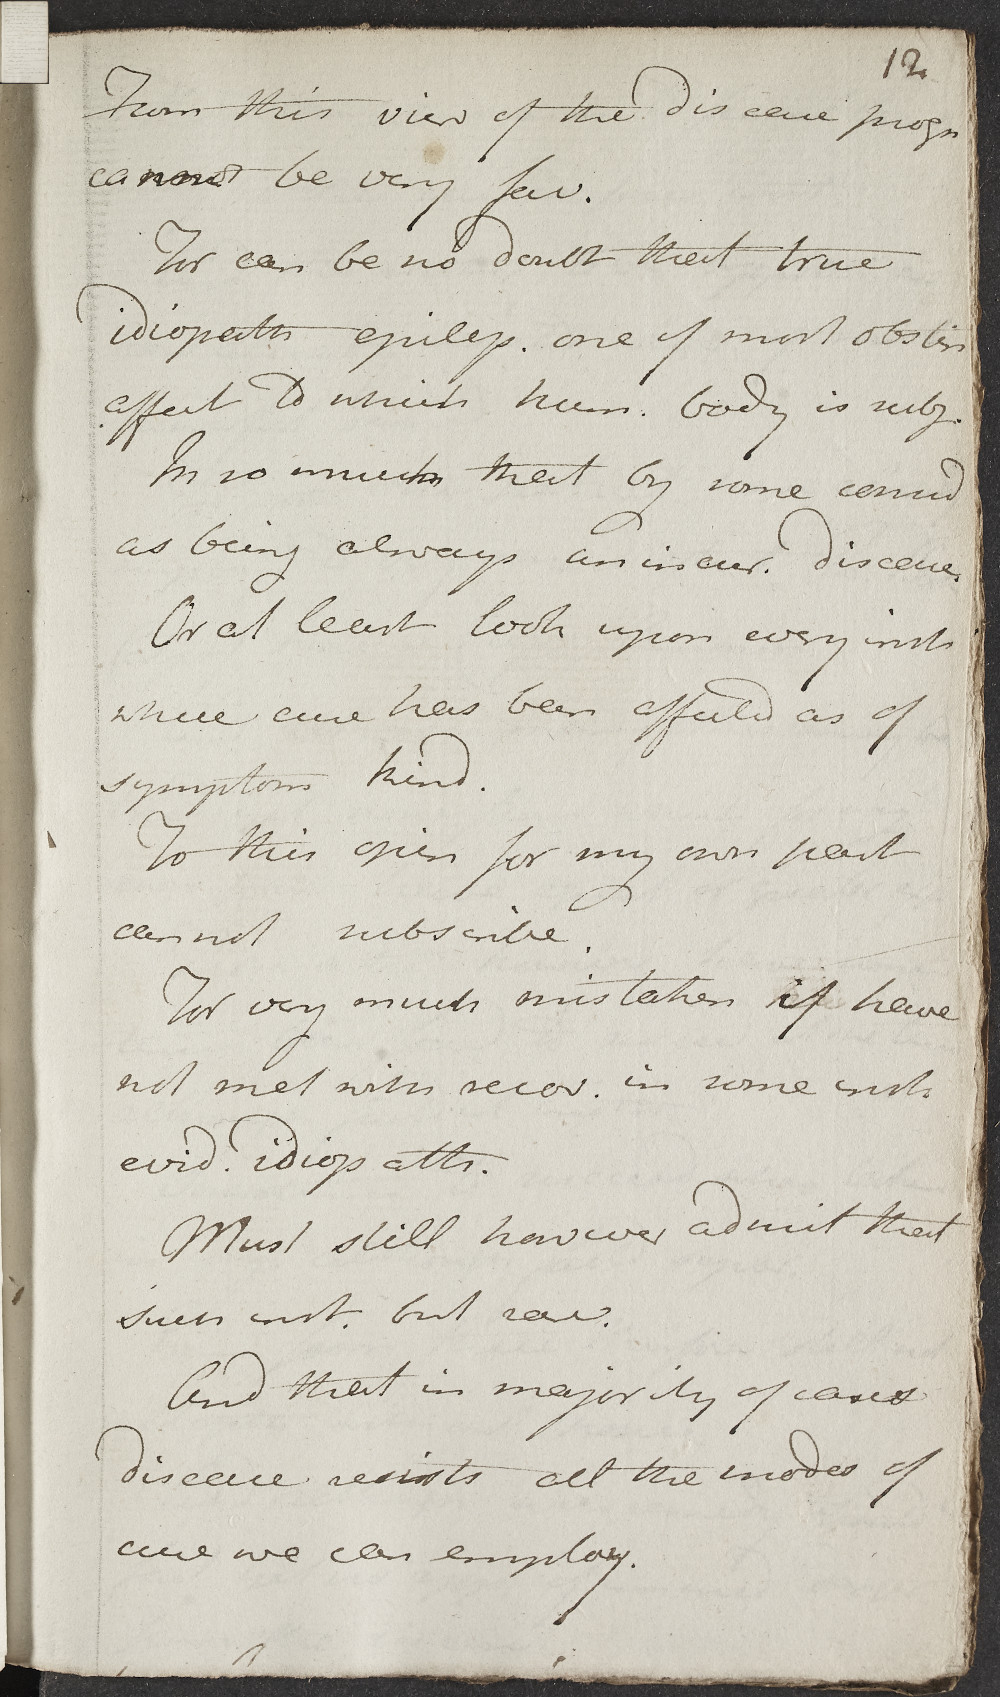 12
From this view of the disease progn
cannot be very fav.
For can be no doubt that true
idiopath epilep. one of most obstin
affect to which hum. body is subj.
In so much that by some consid
as being always an incur. disease.
Or at least look upon every inst
where cure has been effected as of
symptom kind.
To this opin for my own part
cannot subscribe.
For very much mistaken if have
not met with recov. in some inst.
evid. idiopath.
Must still however admit that
such inst. but rare.
And that in majority of cases
disease resists all the modes of
cure we can employ.